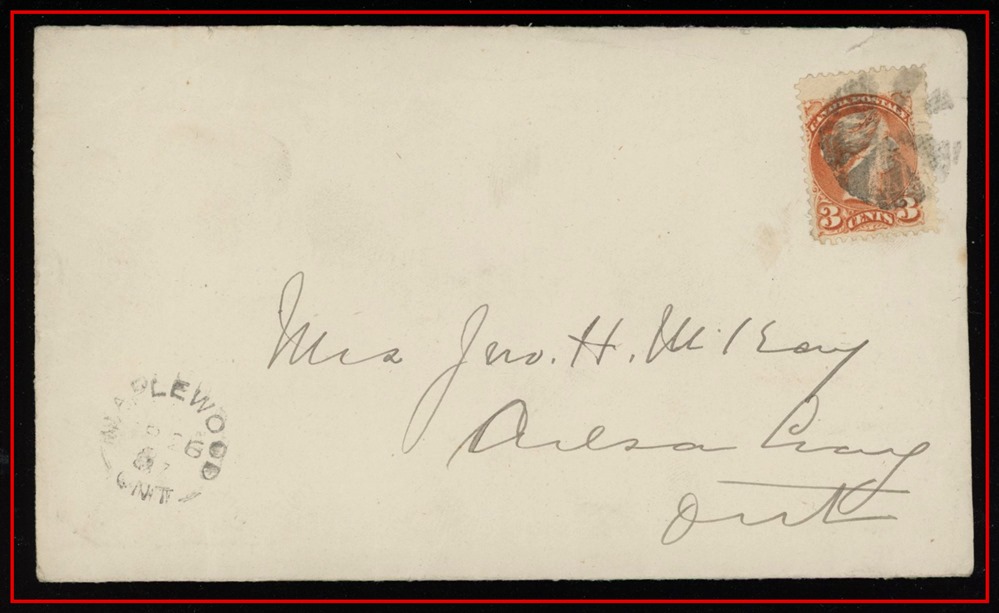 CANADA POSTAGE
3 CENTS 3
Mrs Jno. H. McKay
Ailsa Craig
Ont
MAPLEWOOD
6
87
ONT